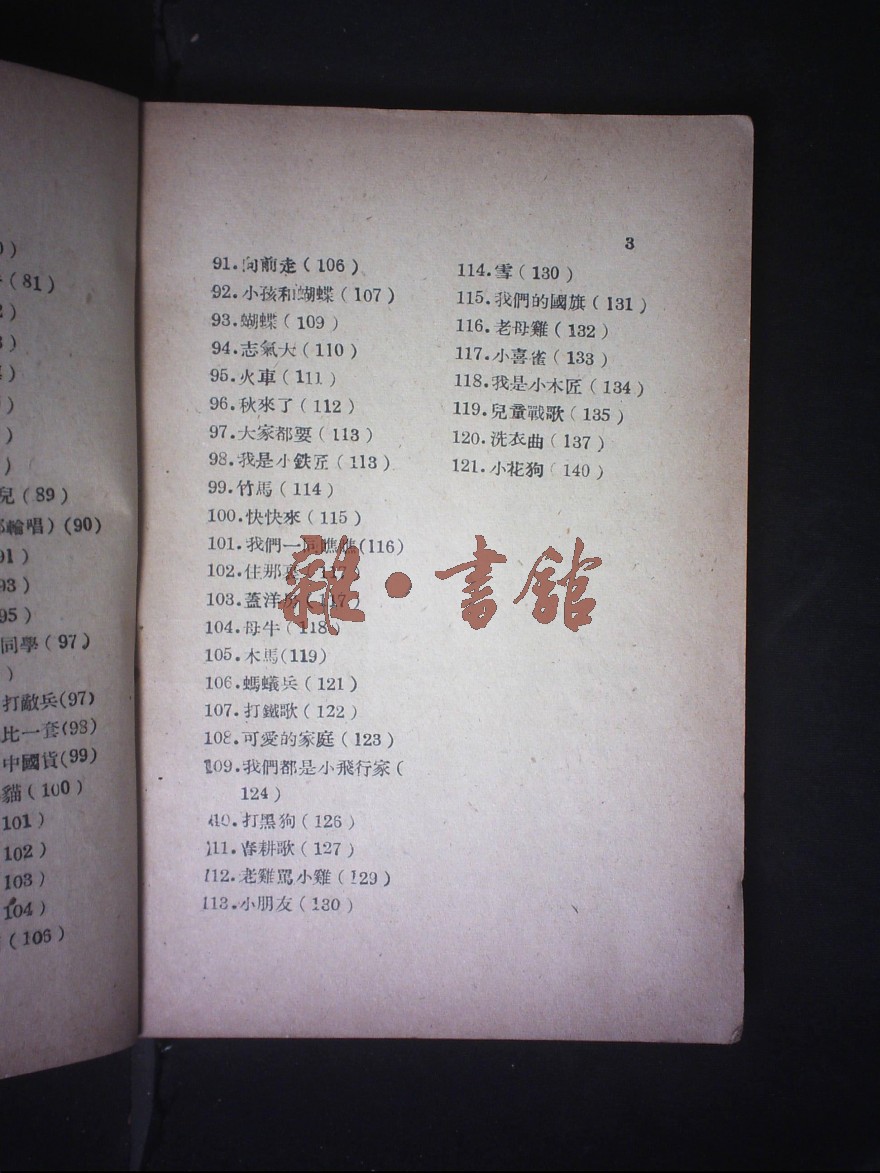 )
(81)
)
)
)
)
)
)
兒(89)
輪唱)(90)
91)
93)
95)
同學(97)
)
打敵兵(97)
比一套(98)
中國貨(99)
貓(100)
101)
102)
103)
104)
(106)
3
91.向前走(106)
92.小孩和蝴蝶(107)
93.蝴蝶(109)
94.志氣大(110)
95.火車(111)
96.秋來了(112)
97.大家都要(113)
98.我是小鉄匠(113)
99.竹馬(114)
100.快快來(115)
101.我們一同瞧瞧(116)
102.住那裏(117)
103.蓋洋房(117)
104.母牛(118)
105.木馬(119)
106.螞蟻兵(121)
107.打鐵歌(122)
108.可愛的家庭(123)
109.我們都是小飛行家(
124)
110.打黑狗(126)
111.春耕歌(127)
112.老雞罵小雞(129)
113.小朋友(130)
114.雪(130)
115.我們的國旗(131)
116.老母雞(132)
117.小喜雀(133)
118.我是小木匠(134)
119.兒童戰歌(135)
120.洗衣曲(137)
121.小花狗(140)
雜·書館